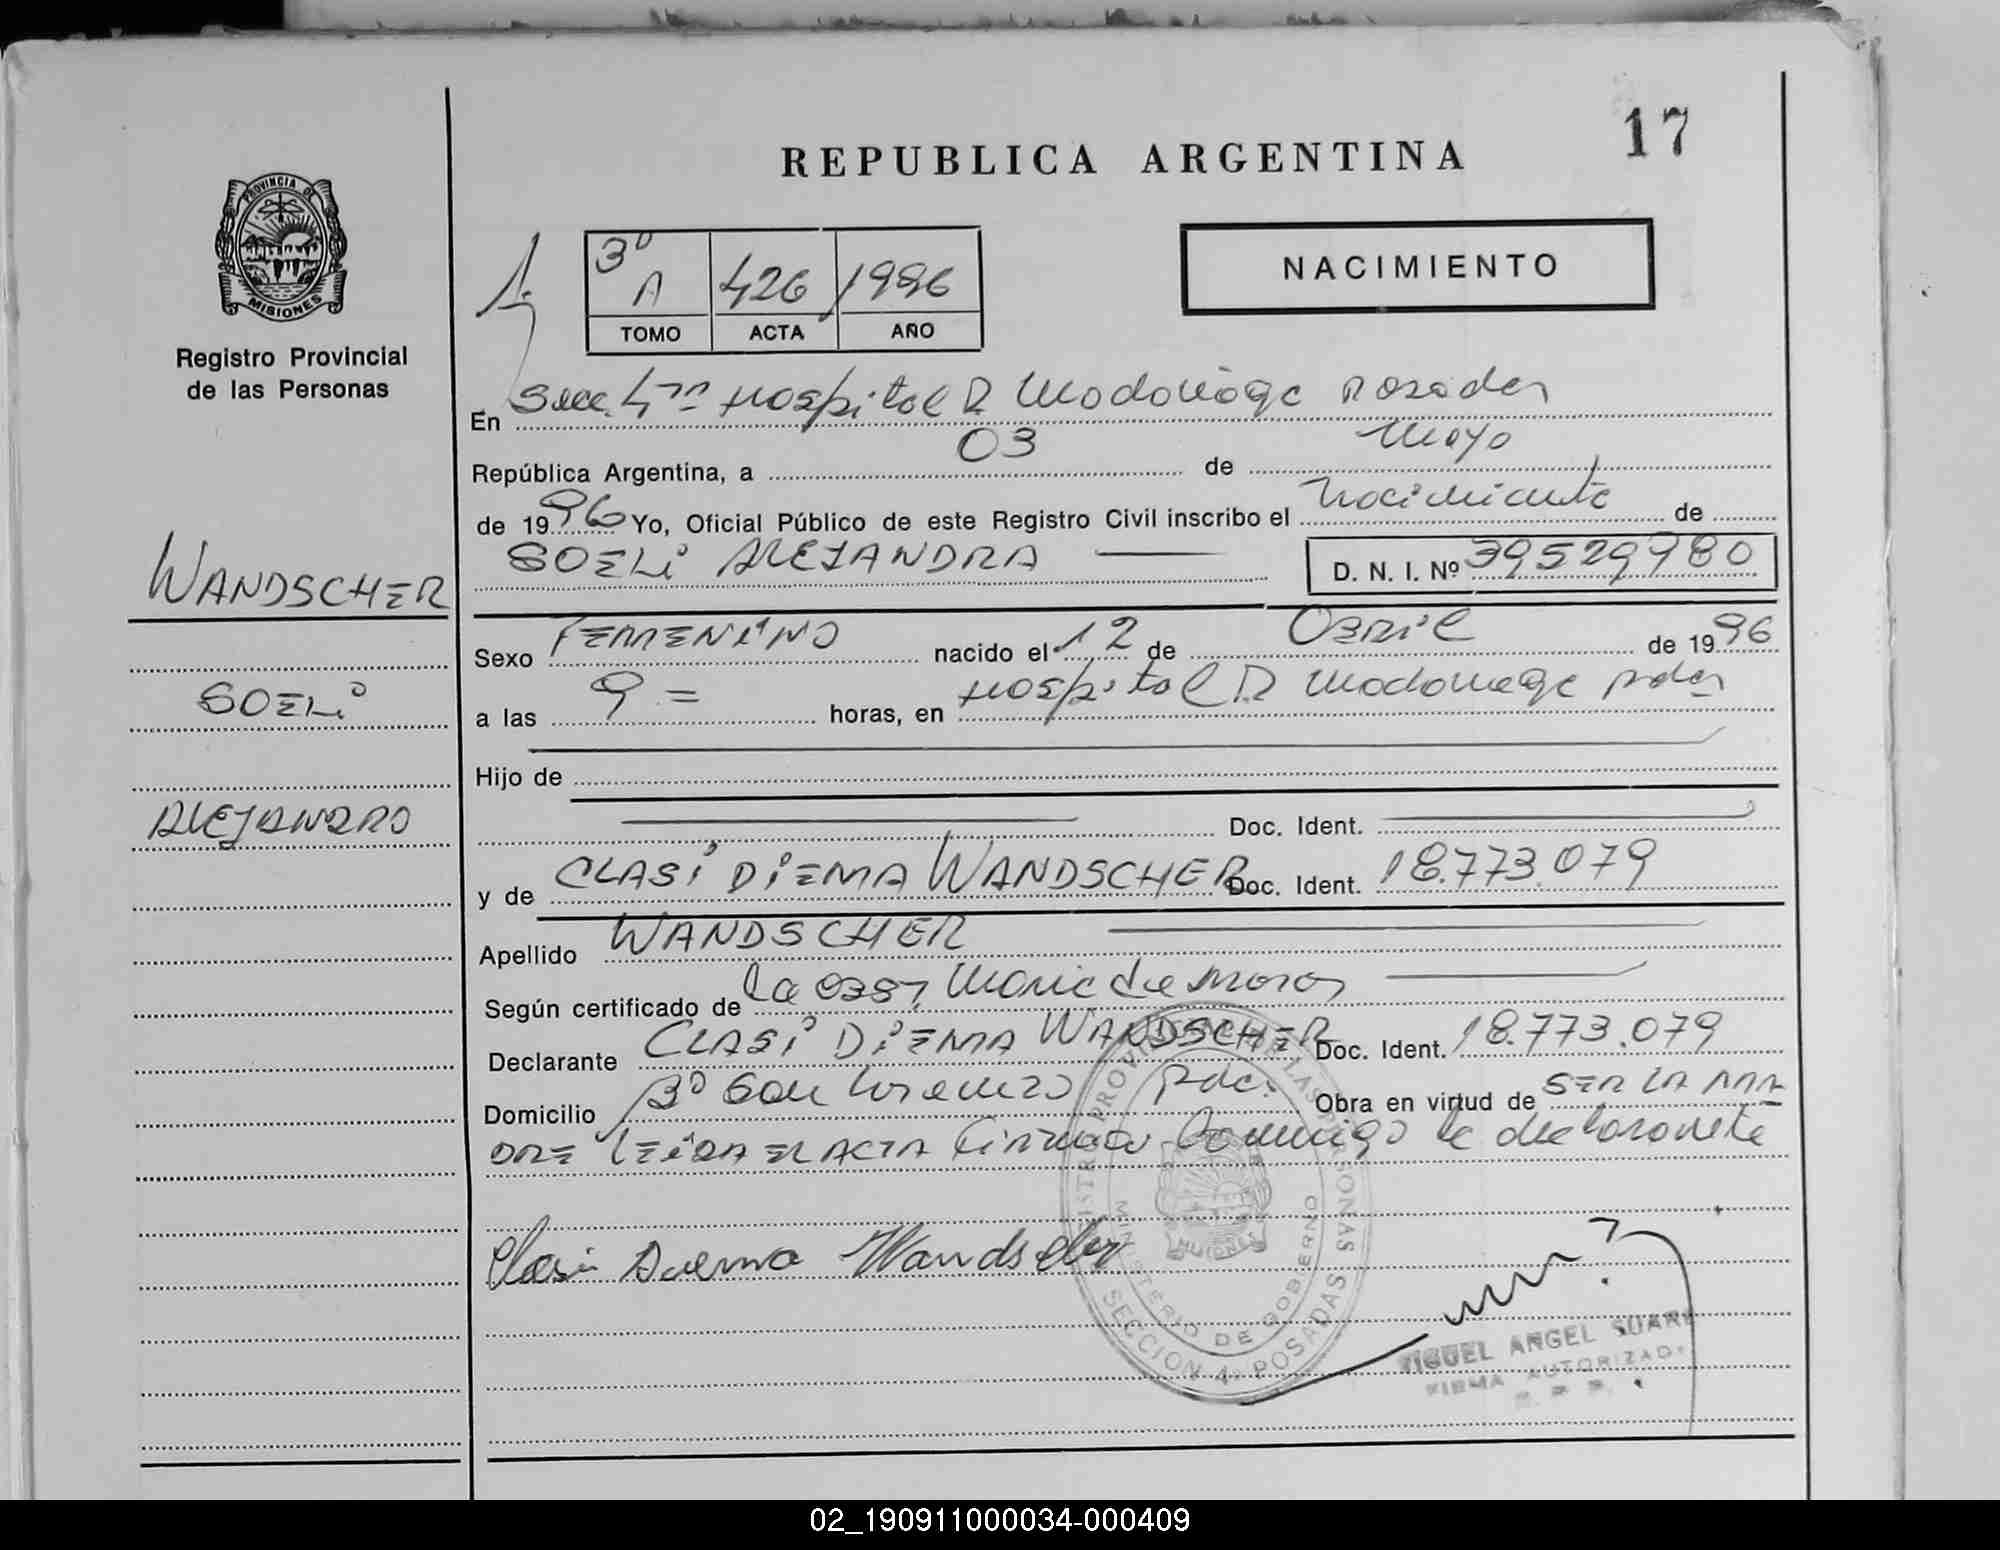 17
REPUBLICA ARGENTINA
PROVINCIA DE
MISIONES
Registro Provincial
de las Personas
NACIMIENTO
3º A 426 1996
TOMO ACTA AÑO
En Secc. 4ta Hospital R Madariaga Posadas
República Argentina, a 03 de Mayo
de 1996 Yo, Oficial Público de este Registro Civil inscribo el nacimiento de
SOELI ALEJANDRA D. N. I. Nº 39529980
WANDSCHER
SOELI
ALEJANDRA
Sexo FEMENINO nacido el 12 de ABRIL de 1996
a las 9 = horas, en Hospital R Madariaga pdas
Hijo de
Doc. Ident.
y de CLASI DIEMA WANDSCHER Doc. Ident. 18.773.079
Apellido WANDSCHER
Según certificado de la Obst. Maria de
Declarante CLASI DIEMA WANDSCHER Doc. Ident. 18.773.079
Domicilio Bº San Lorenzo pdas. Obra en virtud de SER LA MA
DRE LEIDA EL ACTA firma conmigo la declarante
Clasi Diema Wandscher
REGISTRO PROVINCIAL DE LAS PERSONAS
MINISTERIO DE GOBIERNO
MISIONES
SECCION 4a POSADAS
MIGUEL ANGEL SUAREZ
FIRMA AUTORIZADA
R. P. P.
02_190911000034-000409